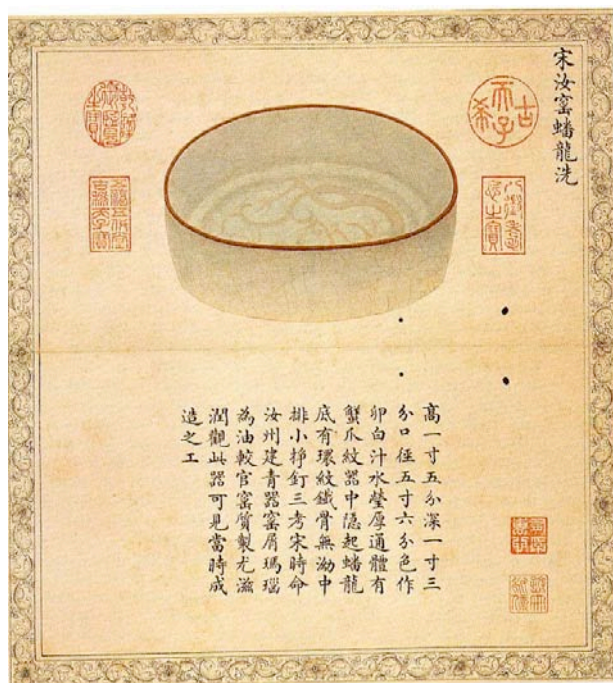 宋汝窯蟠龍洗
古希天子
八徵耄念之寶
乾隆御覽之寶
五福五代堂古稀天子寶
高一寸五分深一寸三
分口徑五寸六分色作
卵白汁水瑩厚通體有
蟹爪紋器中隱起蟠龍
底有環紋鐵骨無泑中
排小掙釘三考宋時命
汝州建青器窯屑瑪瑙
為油較官窯質製尤滋
潤觀此器可見當時成
造之工